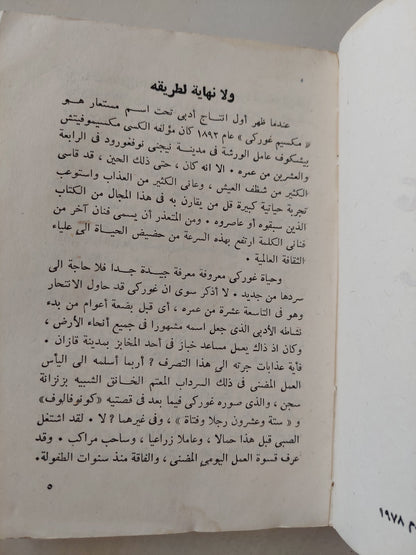 ولا نهاية لطريقه
عندما ظهر أول انتاج أدبى تحت اسم مستعار هــو
« مكسيم غوركى » عام ١٨٩٢ كان مؤلفه الكسى مكسيموفيتش
بيشكوف عامل الورشة فى مدينة نيجنى نوفغورود فى الرابعة
والعشرين من عمره • الا انه كان ، حتى ذلك الحين ، قد قاسى
الكثير من شظف العيش ، وعانى الكثير من العذاب واستوعب
تجربة حياتية كبيرة قل من يقارن به فى هذا المجال من الكتاب
الذين سبقوه أو عاصروه • ومن المتعذر أن يسمى فنان آخر من
فنانى الكلمة ارتفع بهذه السرعة من حضيض الحياة الى علياء
الثقافة العالمية •
وحياة غوركى معروفة معرفة جيــدة جــدا فلا حاجة الى
سردها من جديد • لا أذكر سوى ان غوركى قد حاول الانتحار
وهو فى التاسعة عشرة من عمره ، أى قبل بضعة أعوام من بدء
نشاطه الأدبى الذى جعل اسمه مشهورا فى جميع أنحاء الأرض ،
وكان اذ ذاك يعمل مساعد خباز فى أحد المخابز بمدينة قازان •
فأية عذابات جرته الى هــذا التصرف ؟ أربما أسلمه الى اليأس
العمل المضنى فى ذلك السرداب المعتم الخانق الشبيه بزنزانة
سجن ، والذى صوره غوركى فيما بعد فى قصتيه «كونوفالوف»
و « ستة وعشرون رجلا وفتاة » ، وفى غيرهما ؟ لا • لقد اشتغل
الصبى قبل هذا حمالا ، وعاملا زراعيا ، وساحب مراكب • وقد
عرف قسوة العمل اليومى المضنى ، والفاقة منذ سنوات الطفولة •
٥
١٩٧٨